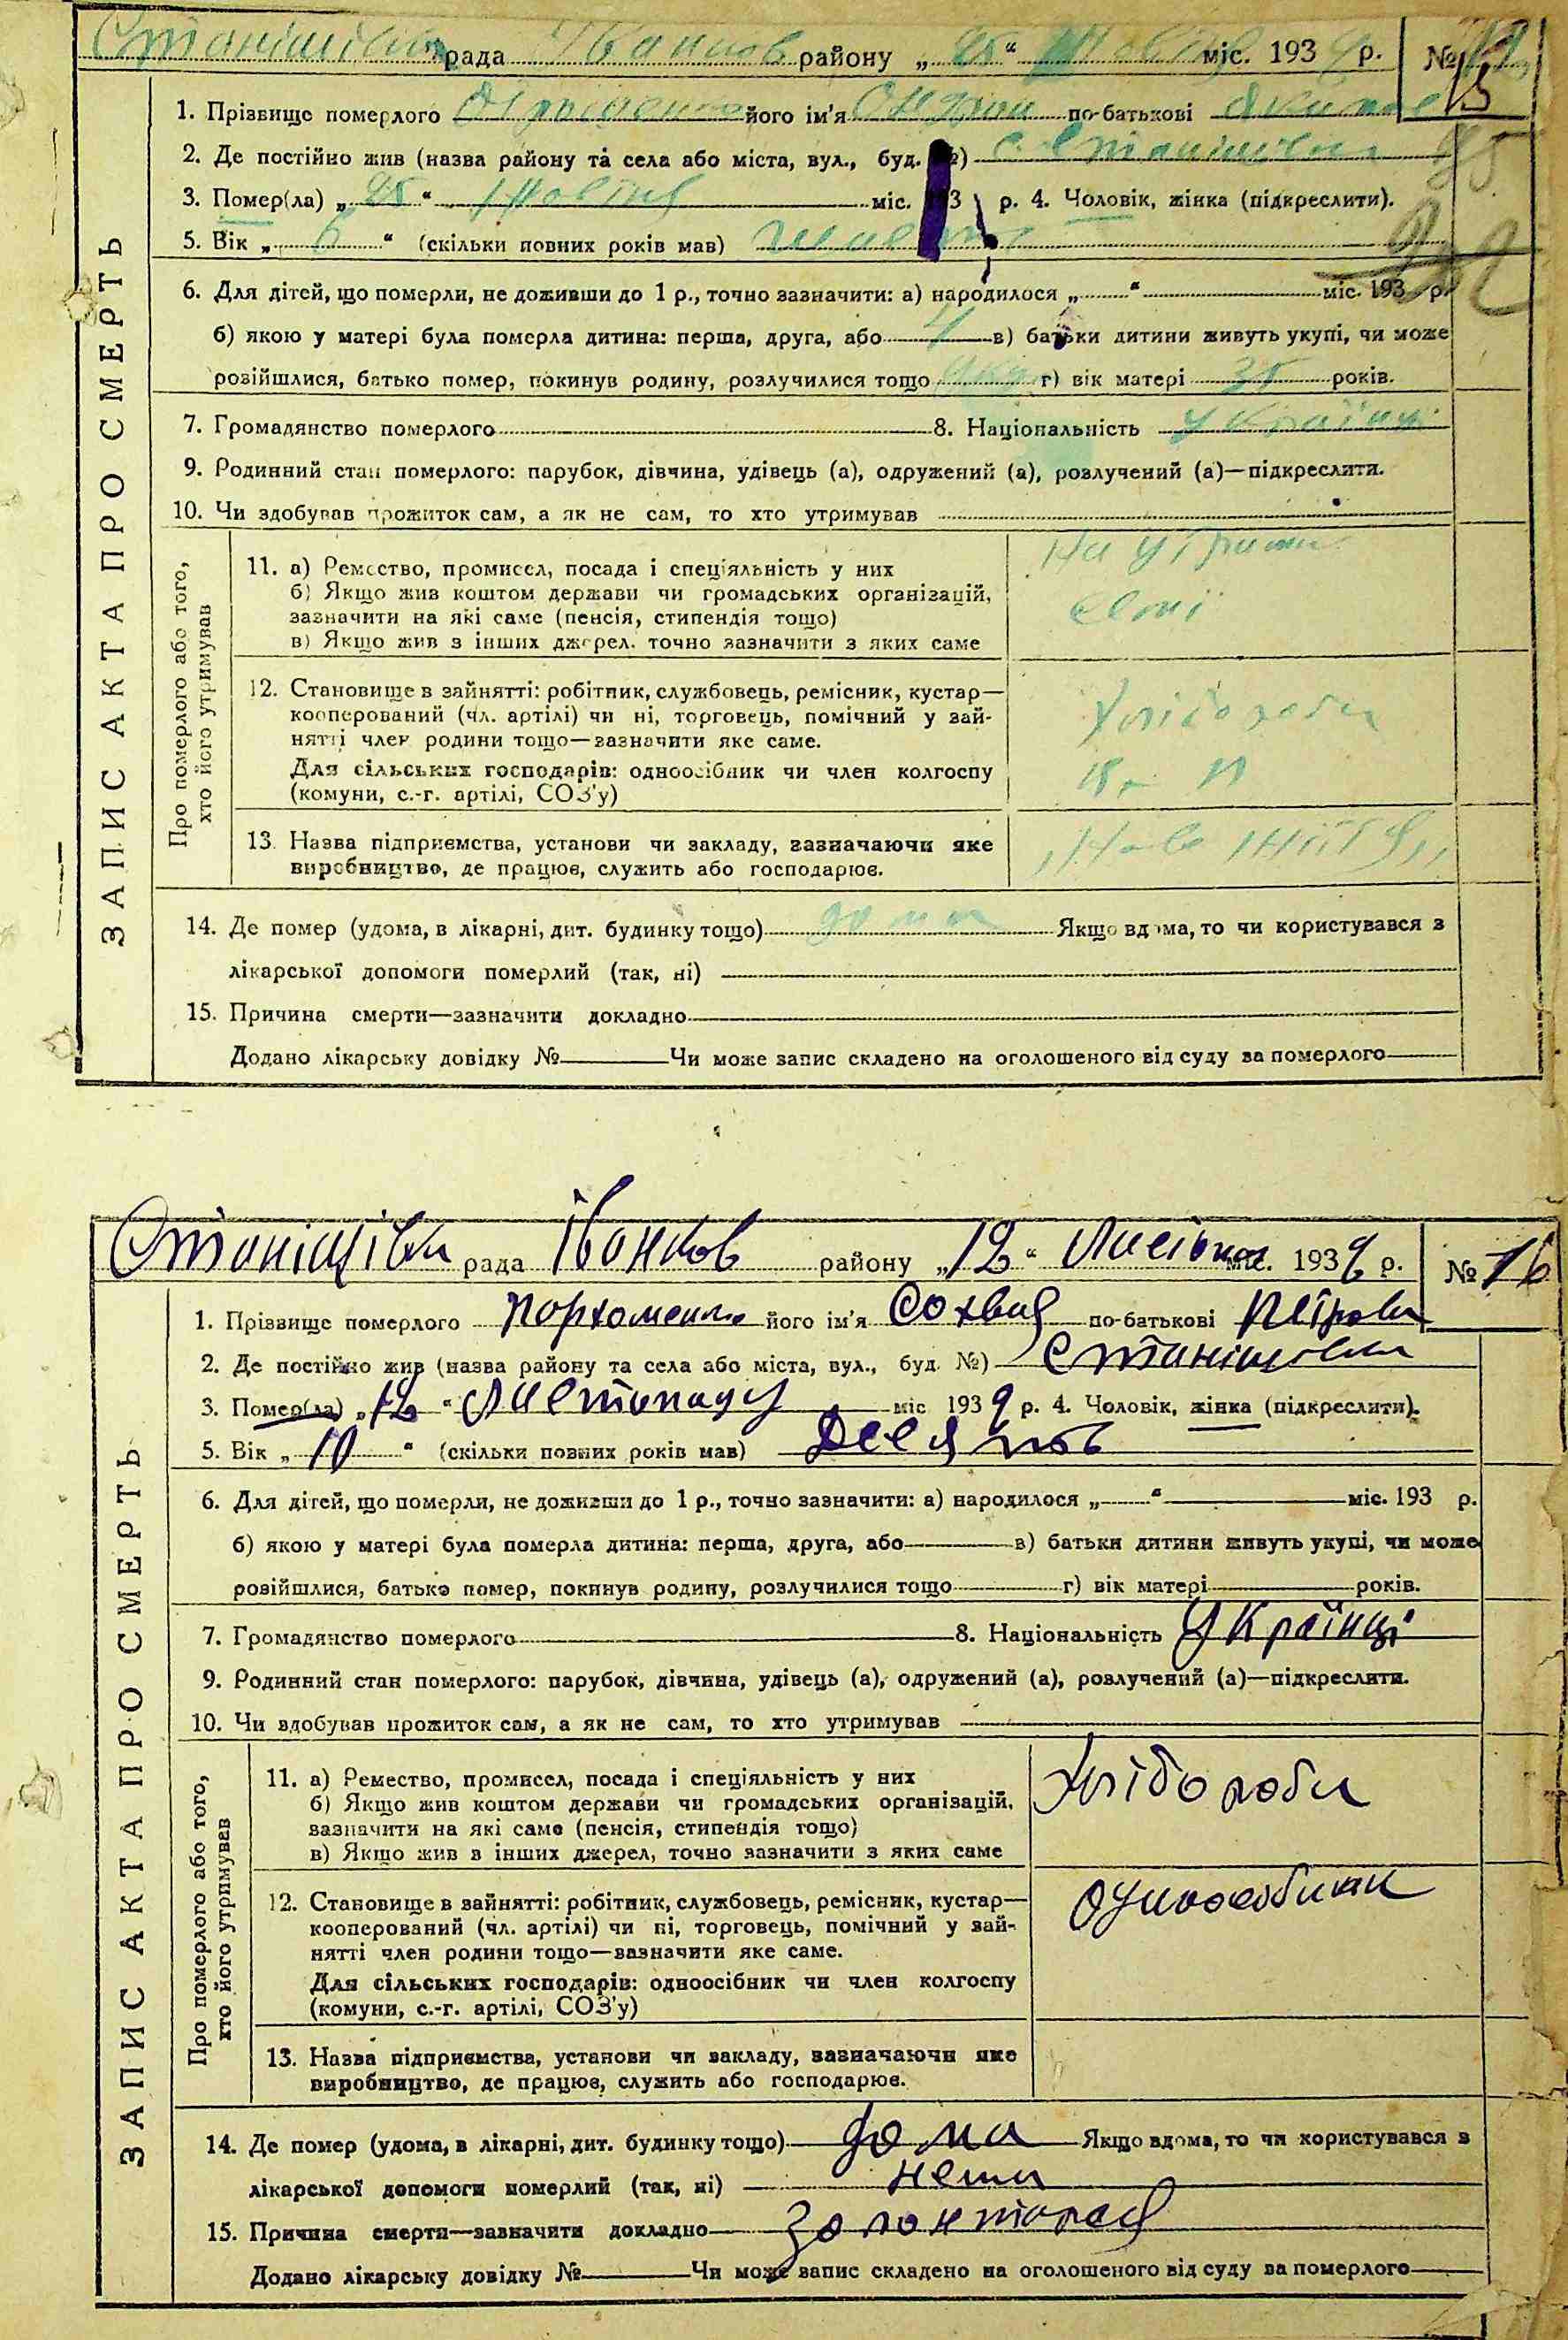 Станішівка рада Іванков району „25“ міс. 193 р. №
15
1. Прізвище померлого його ім'я по-батькові
2. Де постійно жив (назва району та села або міста, вул., буд. №) с. Станішівка
3. Помер(ла) „25“ міс. 193 р. 4. Чоловік, жінка (підкреслити).
5. Вік „6“ (скільки повних років мав)
6. Для дітей, що померли, не доживши до 1 р., точно зазначити: а) народилося „ “ міс. 193 р.
б) якою у матері була померла дитина: перша, друга, або 4 в) батьки дитини живуть укупі, чи може
розійшлися, батько помер, покинув родину, розлучилися тощо г) вік матері 35 років.
7. Громадянство померлого 8. Національність Українці
9. Родинний стан померлого: парубок, дівчина, удівець (а), одружений (а), розлучений (а)—підкреслити.
10. Чи здобував прожиток сам, а як не сам, то хто утримував
ЗАПИС АКТА ПРО СМЕРТЬ
Про померлого або того,
хто його утримував
11. а) Ремество, промисел, посада і спеціяльність у них
б) Якщо жив коштом держави чи громадських організацій,
зазначити на які саме (пенсія, стипендія тощо)
в) Якщо жив з інших джерел, точно зазначити з яких саме
На
12. Становище в зайнятті: робітник, службовець, ремісник, кустар—
кооперований (чл. артілі) чи ні, торговець, помічний у зай-
нятті член родини тощо—зазначити яке саме.
Для сільських господарів: одноосібник чи член колгоспу
(комуни, с.-г. артілі, СОЗ'у)
Хлібороби
13. Назва підприємства, установи чи закладу, зазначаючи яке
виробництво, де працює, служить або господарює.
14. Де помер (удома, в лікарні, дит. будинку тощо) дома Якщо вдома, то чи користувався з
лікарської допомоги померлий (так, ні)
15. Причина смерти—зазначити докладно
Додано лікарську довідку № Чи може запис складено на оголошеного від суду за померлого
Станішівка рада Іванков району „12“ міс. 1939 р. № 16
1. Прізвище померлого Порхоменко його ім'я Сохвія по-батькові Петрова
2. Де постійно жив (назва району та села або міста, вул., буд. №) Станішовка
3. Помер(ла) „12“ Листопаду міс 1939 р. 4. Чоловік, жінка (підкреслити).
5. Вік „10“ (скільки повних років мав)
6. Для дітей, що померли, не доживши до 1 р., точно зазначити: а) народилося „ “ міс. 193 р.
б) якою у матері була померла дитина: перша, друга, або в) батьки дитини живуть укупі, чи може
розійшлися, батько помер, покинув родину, розлучилися тощо г) вік матері років.
7. Громадянство померлого 8. Національність Українці
9. Родинний стан померлого: парубок, дівчина, удівець (а), одружений (а), розлучений (а)—підкреслити.
10. Чи здобував прожиток сам, а як не сам, то хто утримував
ЗАПИС АКТА ПРО СМЕРТЬ
Про померлого або того,
хто його утримував
11. а) Ремество, промисел, посада і спеціяльність у них
б) Якщо жив коштом держави чи громадських організацій,
зазначити на які саме (пенсія, стипендія тощо)
в) Якщо жив з інших джерел, точно зазначити з яких саме
Хлібороби
12. Становище в зайнятті: робітник, службовець, ремісник, кустар—
кооперований (чл. артілі) чи ні, торговець, помічний у зай-
нятті член родини тощо—зазначити яке саме.
Для сільських господарів: одноосібник чи член колгоспу
(комуни, с.-г. артілі, СОЗ'у)
13. Назва підприємства, установи чи закладу, зазначаючи яке
виробництво, де працює, служить або господарює.
14. Де помер (удома, в лікарні, дит. будинку тощо) дома Якщо вдома, то чи користувався з
лікарської допомоги померлий (так, ні) нема
15. Причина смерти—зазначити докладно
Додано лікарську довідку № Чи може запис складено на оголошеного від суду за померлого